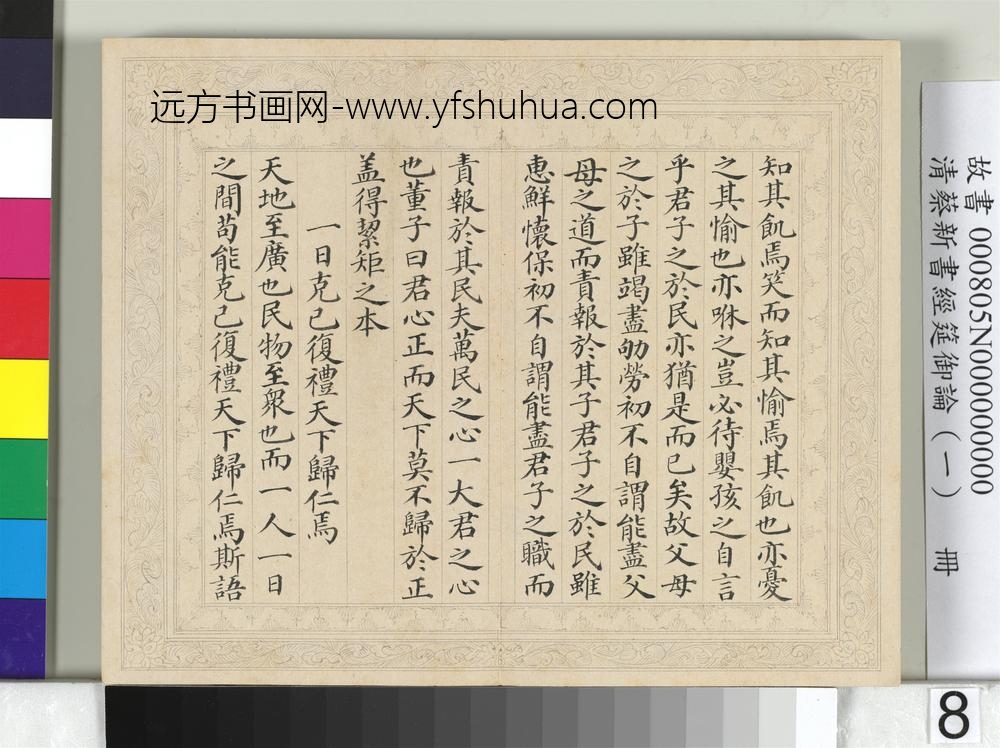 远方书画网-www.yfshuhua.com
知其飢焉笑而知其愉焉其飢也亦憂
之其愉也亦咻之豈必待嬰孩之自言
乎君子之於民亦猶是而已矣故父母
之於子雖竭盡劬勞初不自謂能盡父
母之道而責報於其子君子之於民雖
惠鮮懷保初不自謂能盡君子之職而
責報於其民夫萬民之心一大君之心
也董子曰君心正而天下莫不歸於正
盖得絜矩之本
一日克己復禮天下歸仁焉
天地至廣也民物至衆也而一人一日
之間苟能克己復禮天下歸仁焉斯語
故書 000805N000000000
清蔡新書經筵御論(一) 冊
8